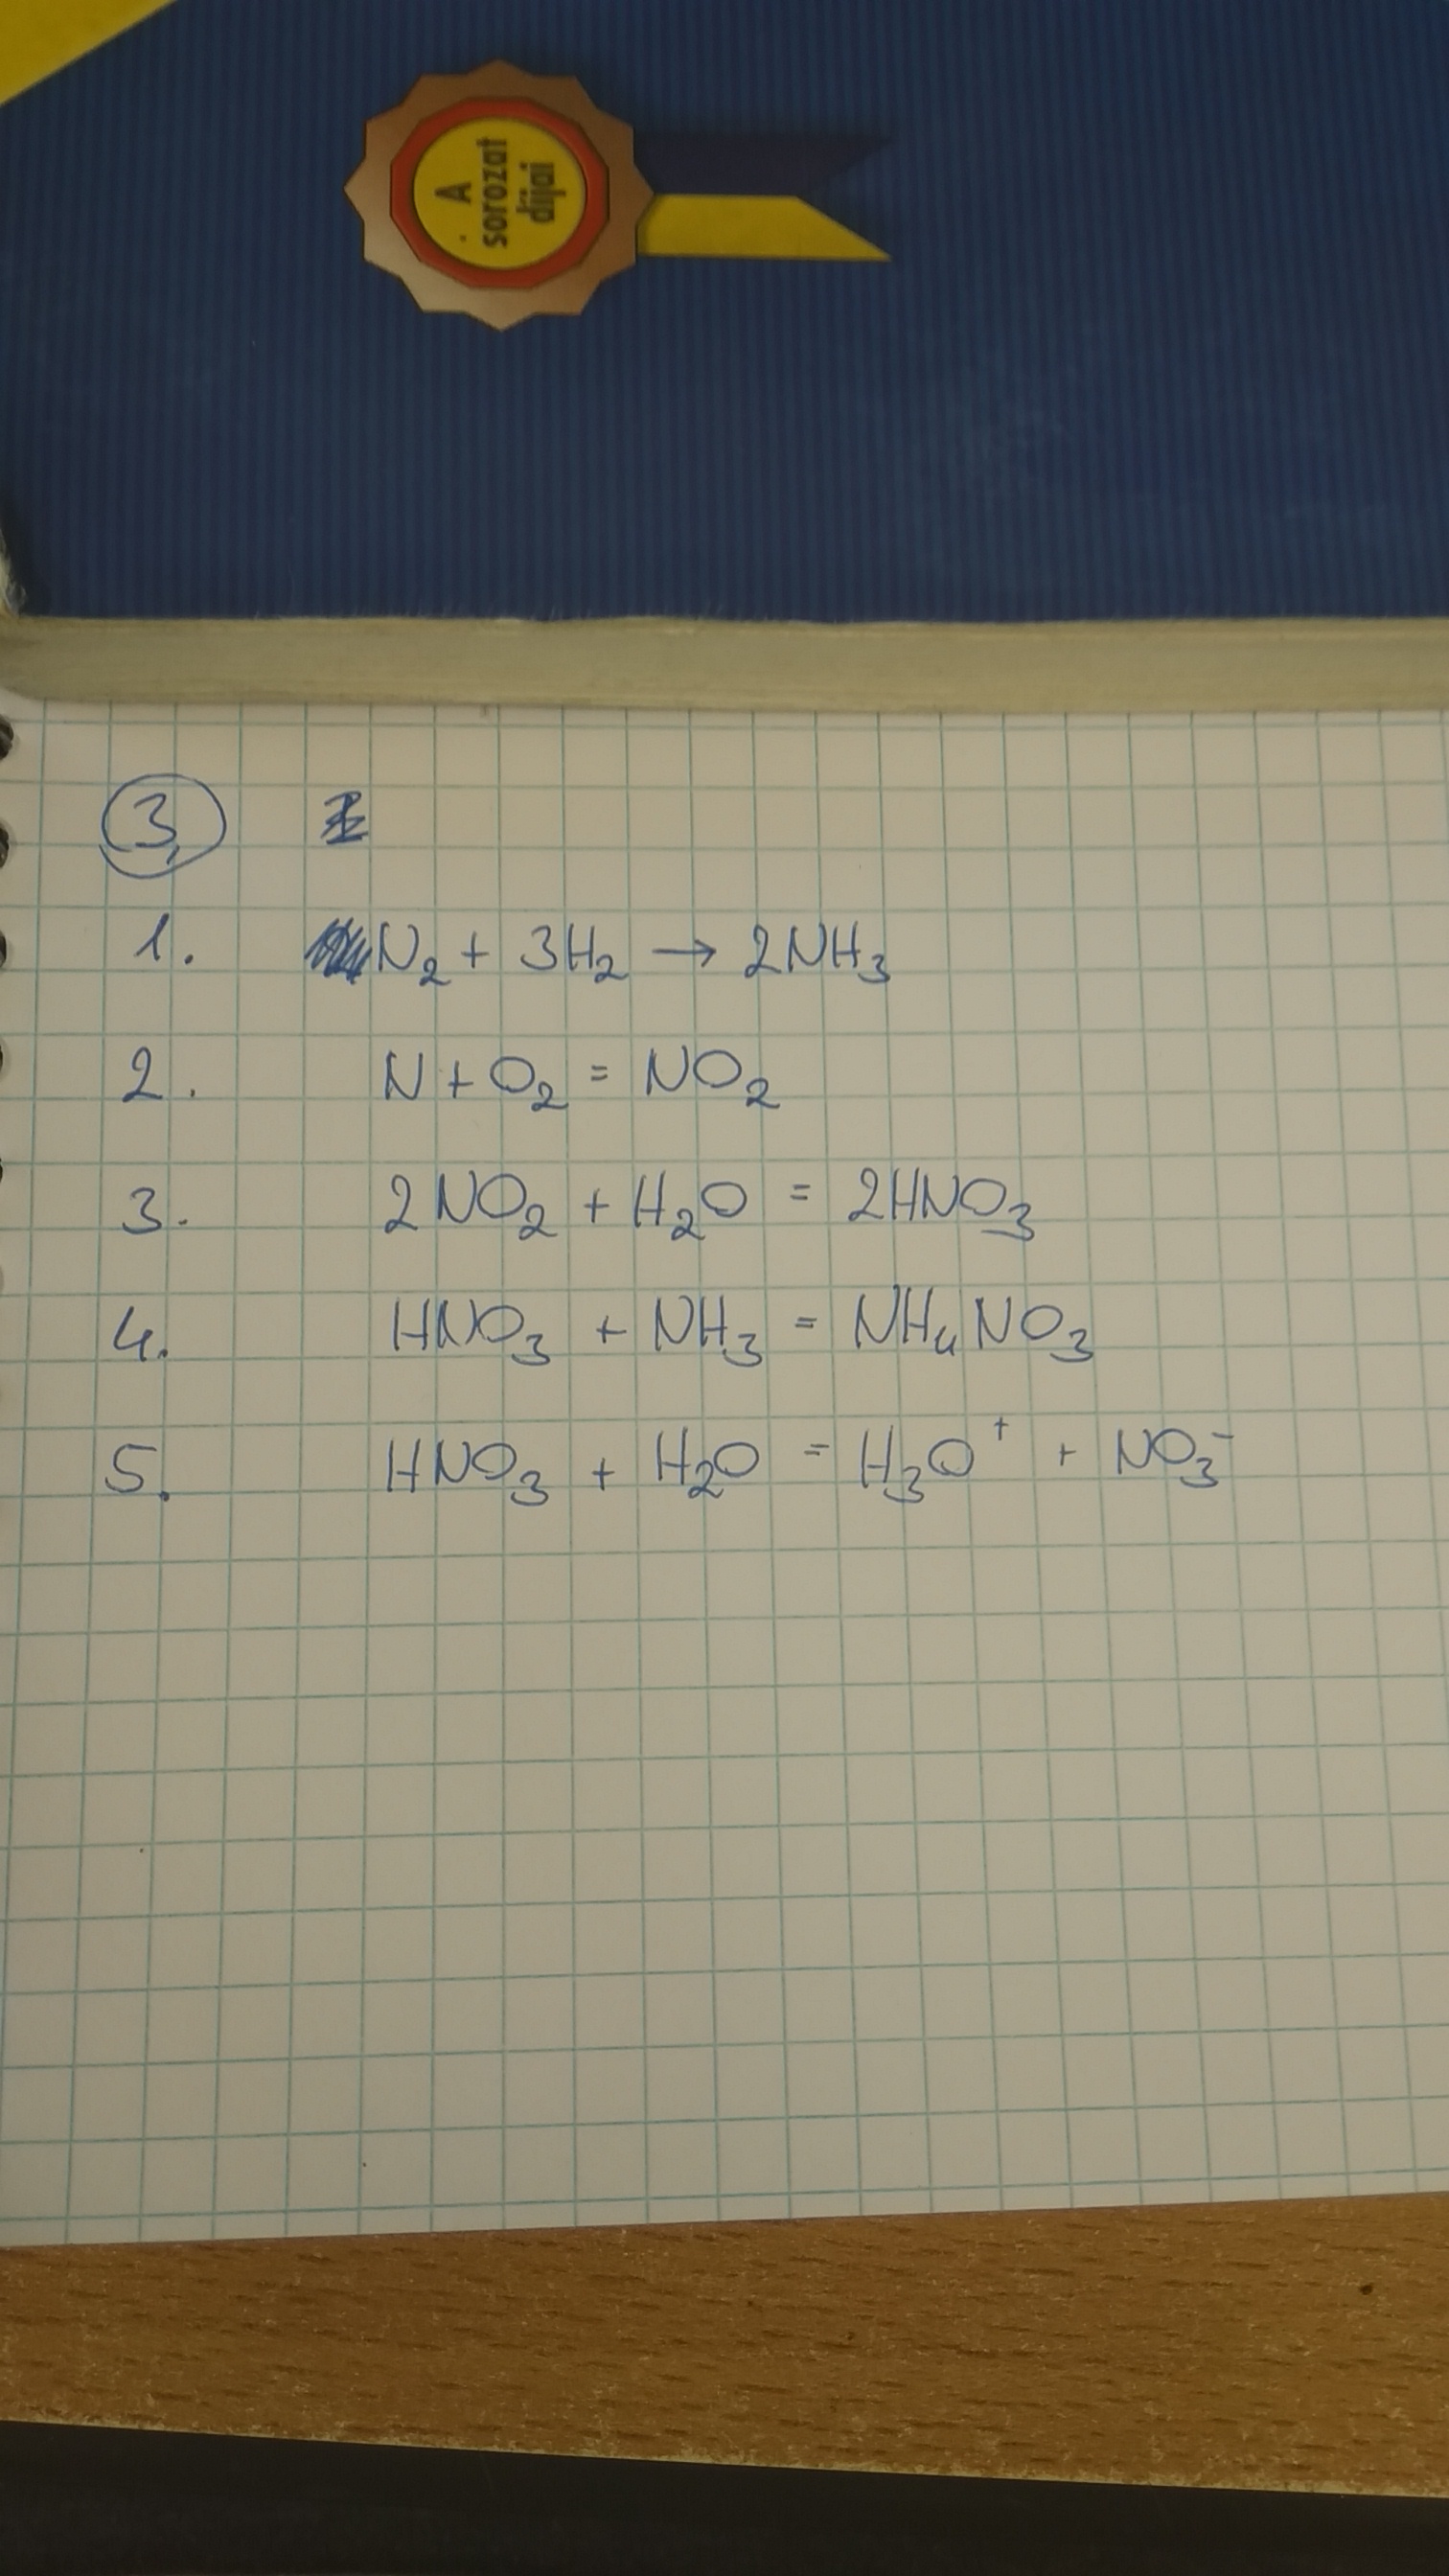 A
sorozat
díjai
3,
1. N₂ + 3H₂ → 2NH₃
2. N + O₂ = NO₂
3. 2NO₂ + H₂O = 2HNO₃
4. HNO₃ + NH₃ = NH₄NO₃
5. HNO₃ + H₂O = H₃O⁺ + NO₃⁻